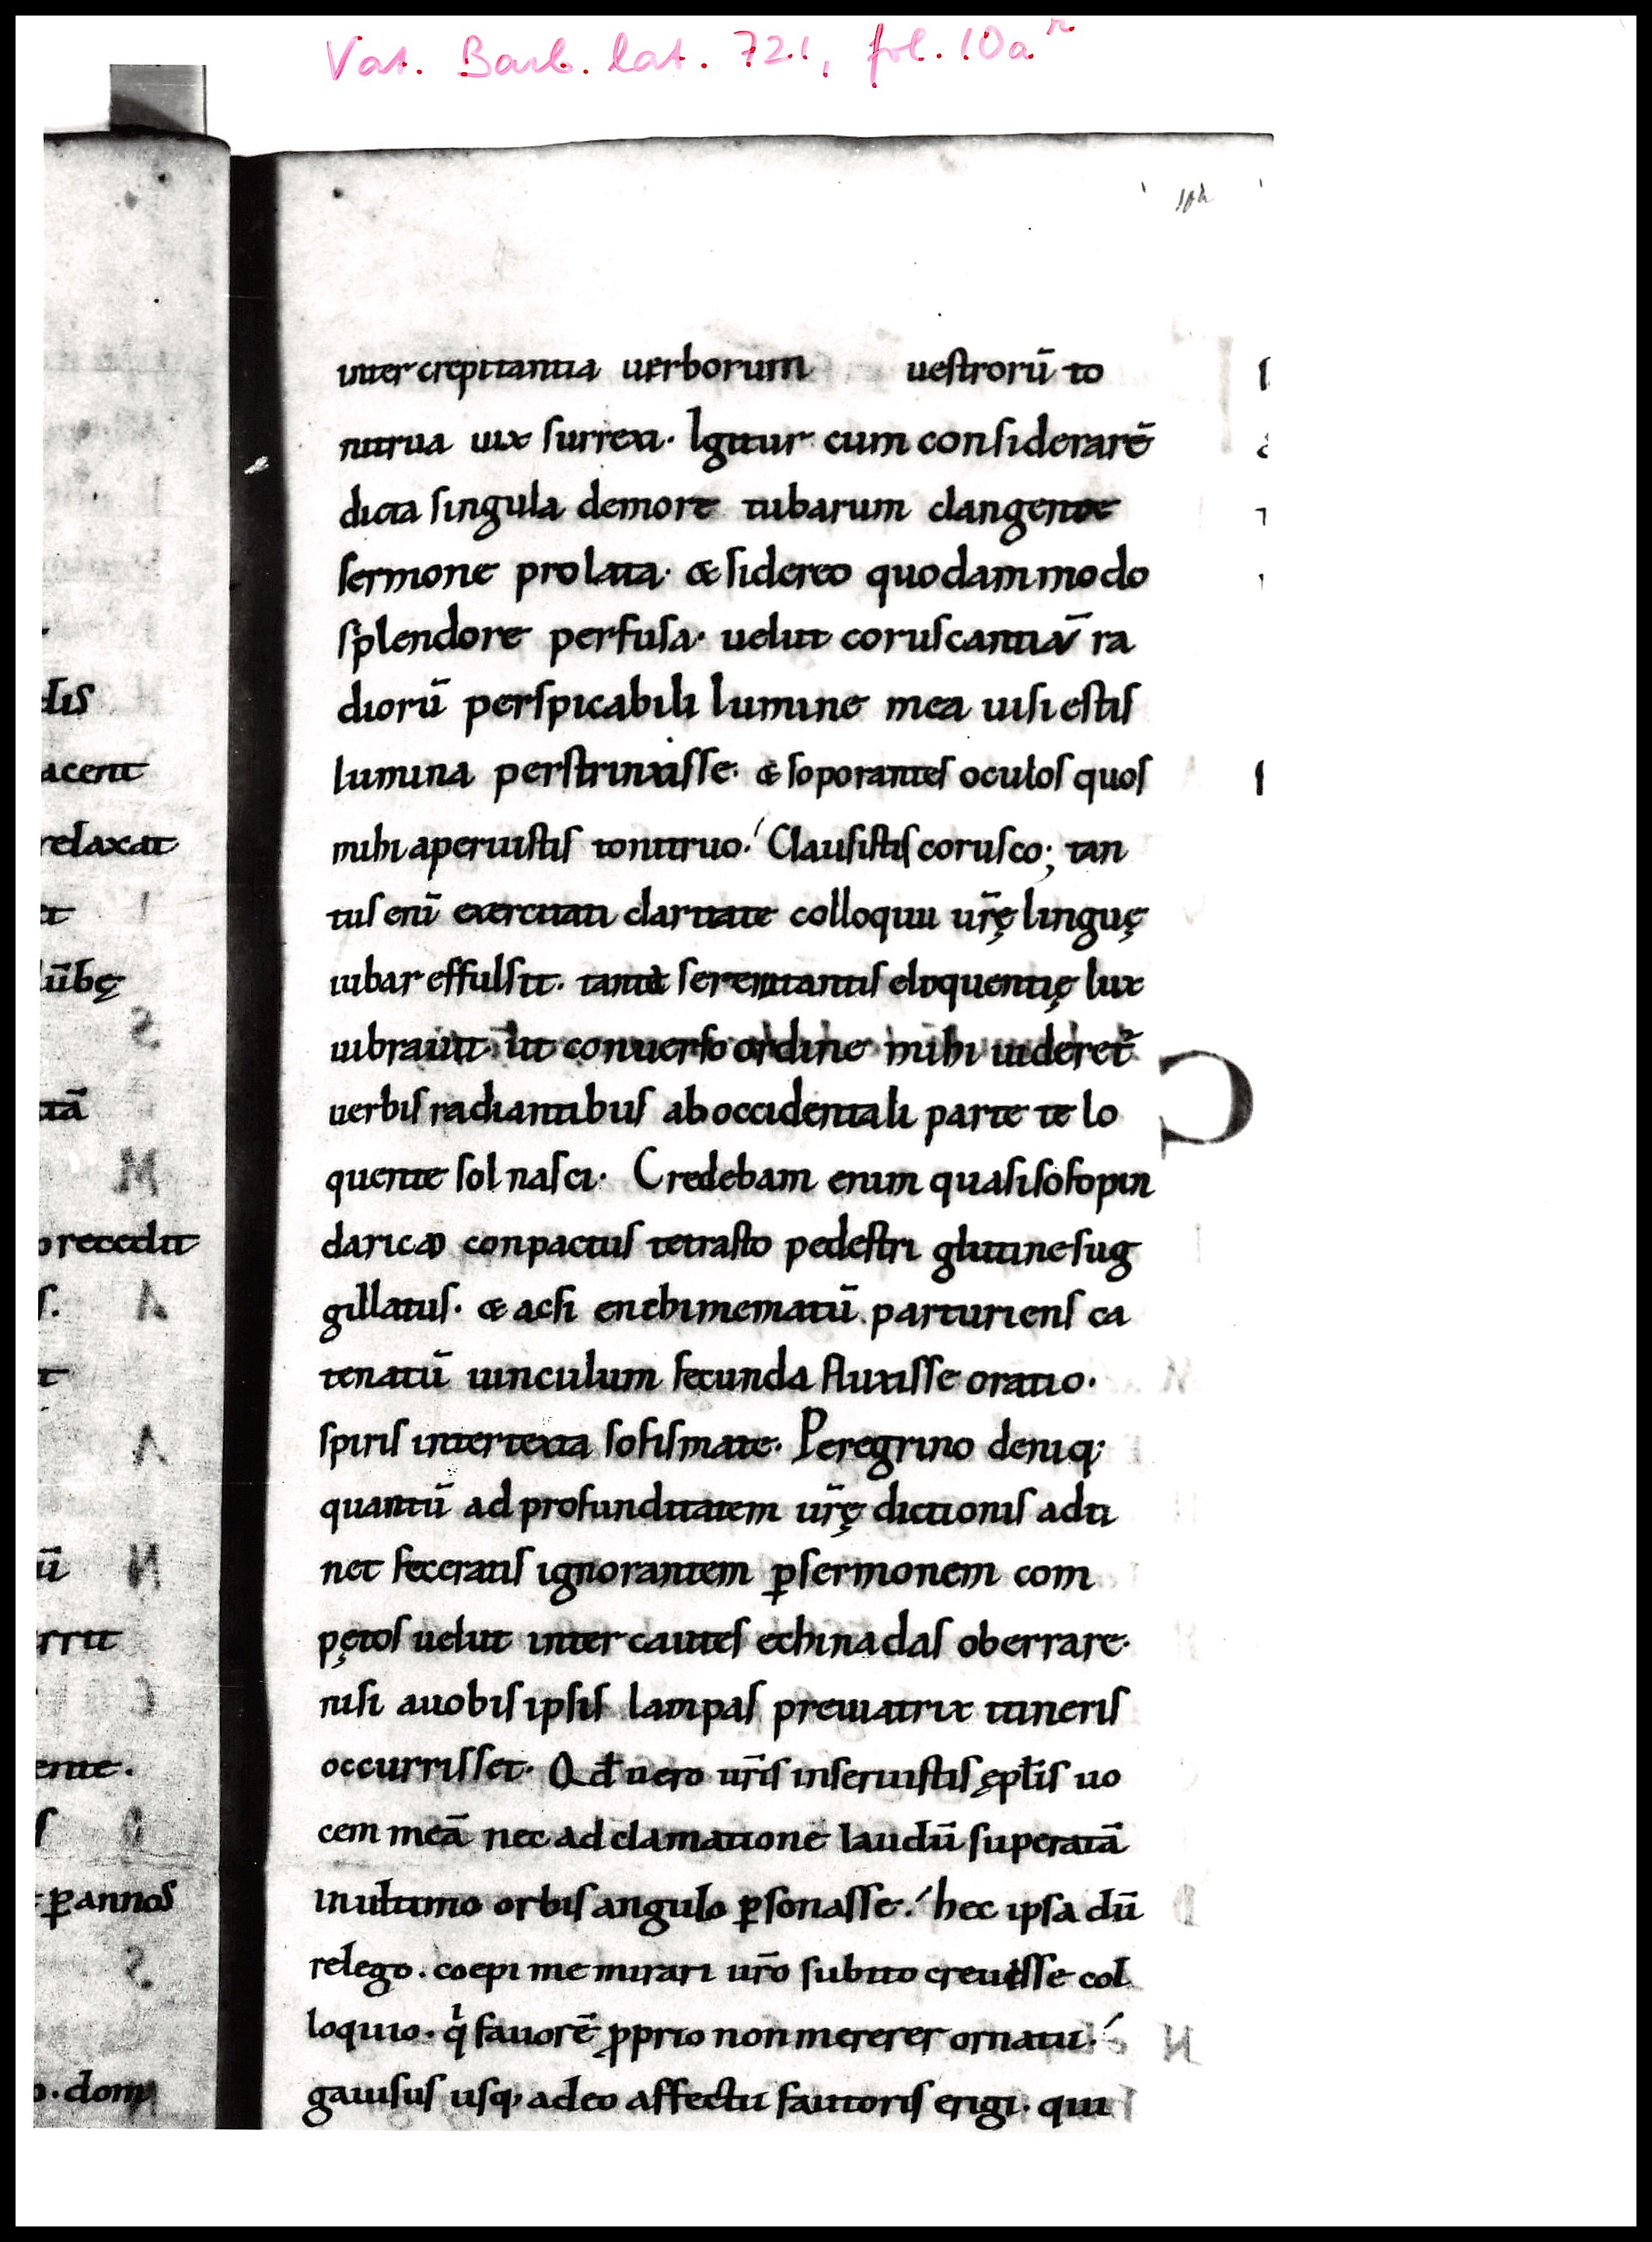 Vat. Barb. lat. 721, fol. 10aʳ
10a
inter crepitantia uerborum uestrorū to
nitrua uix surrexi. Igitur cum considerarē
dicta singula demore tubarum clangente
sermone prolata. & sidereo quodammodo
splendore perfusa. uelut coruscantiū ra
diorū perspicabili lumine mea uisi estis
lumina perstrinxisse. & soporantes oculos quos
mihi aperuistis tonitruo. Clausistis corusco; tan
tus enī exercitati claritate colloquii ur̄ę linguę
iubar effulsit. tanta serenitantis eloquentię lux
uibrauit. ut conuerso ordine mihi uideret᷑
uerbis radiantibus ab occidentali parte te lo
quente sol nasci. Credebam enim quasi sofo pin
darico conpactus tetrasto pedestri glutine sug
gillatus. & acsi enthimematū parturiens ca
tenatū uinculum fecunda fluxisse oratio.
spiris intertexta sofismate. Peregrino deniq;
quantū ad profunditatem ur̄ę dictionis adti
net feceratis ignorantem ꝑ sermonem com
pętos uelut inter cautes echinadas oberrare.
nisi auobis ipsis lampas preuiatrix itineris
occurrisset. Qđ uero ur̄is inseruistis ępłis uo
cem meā nec ad clamatione laudū superatā
in ultimo orbis angulo ꝑsonasse. hec ipsa dū
relego. coepi me mirari ur̄o subito creuisse col
loquio. qͥ fauorē ꝓprio non mererer ornatu.
gauisus usq; adeo affectu fautoris erigi. qui
lis
acent
relaxat
ūbę
tā
precedit
ū
rrit
ente.
ꝑ annos
dom